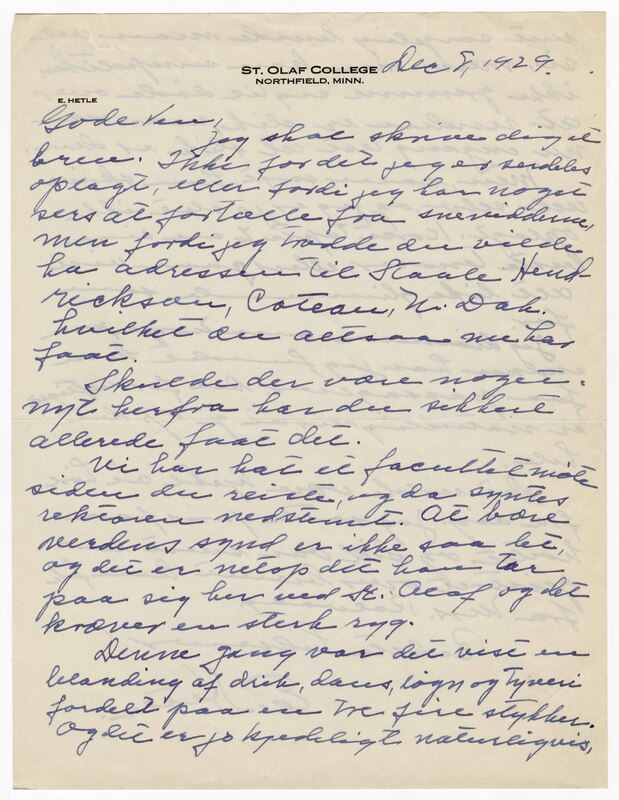 St. Olaf College Dec 8, 1929.
Northfield, Minn.
E. HETLE
Gode Ven,
Jeg skal skrive dig et
brev. Ikke fordi jeg er serdeles
oplagt, eller fordi jeg har noget
sers at fortælle fra snevidderne,
men fordi jeg trodde du vilde
ha adressen til Staale Hend-
rickson, Coteau, N. Dak.
hvilket du altsaa nu har
faat.
Skulde der være noget
nyt herfra har du sikkert
allerede faat det.
Vi har hat et facultetmøte
siden du reiste, og da syntes
rektoren nedstemt. At bære
verdens synd er ikke saa let,
og det er netop det han tar
paa sig her ved St. Olaf og det
kræver en sterk ryg.
Denne gang var det vist en
blanding af drik, dans, løgn og tyveri
fordelt paa en tre fire stykker.
Og det er jo kjedeligt naturligvis,